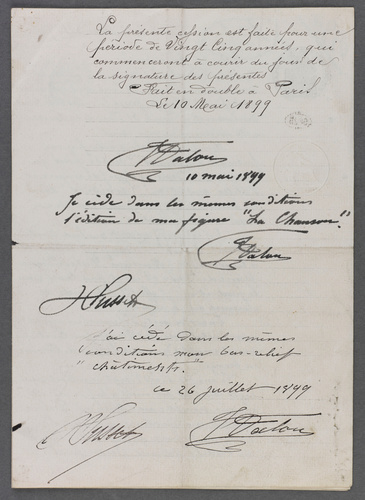 La présente cession est faite pour une
période de Vingt Cinq années, qui
commenceront à courir du jour de
la signature des présentes
Fait en double à Paris
Le 10 Mai 1899
J Dalou
10 mai 1899
Je cède dans les mêmes conditions
l'édition de ma figure "La Chanson".
J Dalou
J'ai cédé dans les mêmes
conditions mon bas-relief
"châtiments."
ce 26 juillet 1899
J Dalou